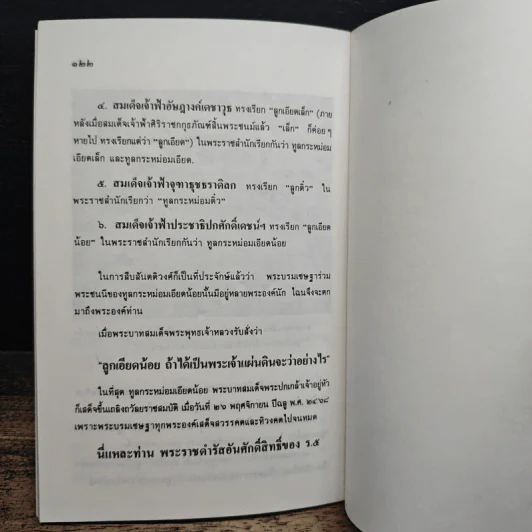 ๑๒๒
๔. สมเด็จเจ้าฟ้าอัษฎางค์เดชาวุธ ทรงเรียก "ลูกเอียดเล็ก" (ภาย
หลังเมื่อสมเด็จเจ้าฟ้าศิริราชกกุธภัณฑ์สิ้นพระชนม์แล้ว "เล็ก" ก็ค่อยๆ
หายไป ทรงเรียกแต่ว่า "ลูกเอียด") ในพระราชสำนักเรียกกันว่า ทูลกระหม่อม
เอียดเล็ก และทูลกระหม่อมเอียด.
๕. สมเด็จเจ้าฟ้าจุฑาธุชธราดิลก ทรงเรียก "ลูกติ๋ว" ใน
พระราชสำนักเรียกว่า "ทูลกระหม่อมติ๋ว"
๖. สมเด็จเจ้าฟ้าประชาธิปกศักดิ์เดชน์ฯ ทรงเรียก "ลูกเอียด
น้อย" ในพระราชสำนักเรียกกันว่า ทูลกระหม่อมเอียดน้อย
ในการสืบสันตติวงศ์ก็เป็นที่ประจักษ์แล้วว่า พระบรมเชษฐาร่วม
พระชนนีของทูลกระหม่อมเอียดน้อยนั้นมีอยู่หลายพระองค์นัก ไฉนจึงจะตก
มาถึงพระองค์ท่าน
เมื่อพระบาทสมเด็จพระพุทธเจ้าหลวงรับสั่งว่า
"ลูกเอียดน้อย ถ้าได้เป็นพระเจ้าแผ่นดินจะว่าอย่างไร"
ในที่สุด ทูลกระหม่อมเอียดน้อย พระบาทสมเด็จพระปกเกล้าเจ้าอยู่หัว
ก็เสด็จขึ้นเถลิงถวัลยราชสมบัติ เมื่อวันที่ ๒๖ พฤศจิกายน ปีฉลู พ.ศ. ๒๔๖๘
เพราะพระบรมเชษฐาทุกพระองค์เสด็จสวรรคตและทิวงคตไปจนหมด
นี่แหละท่าน พระราชดำรัสอันศักดิ์สิทธิ์ของ ร.๕